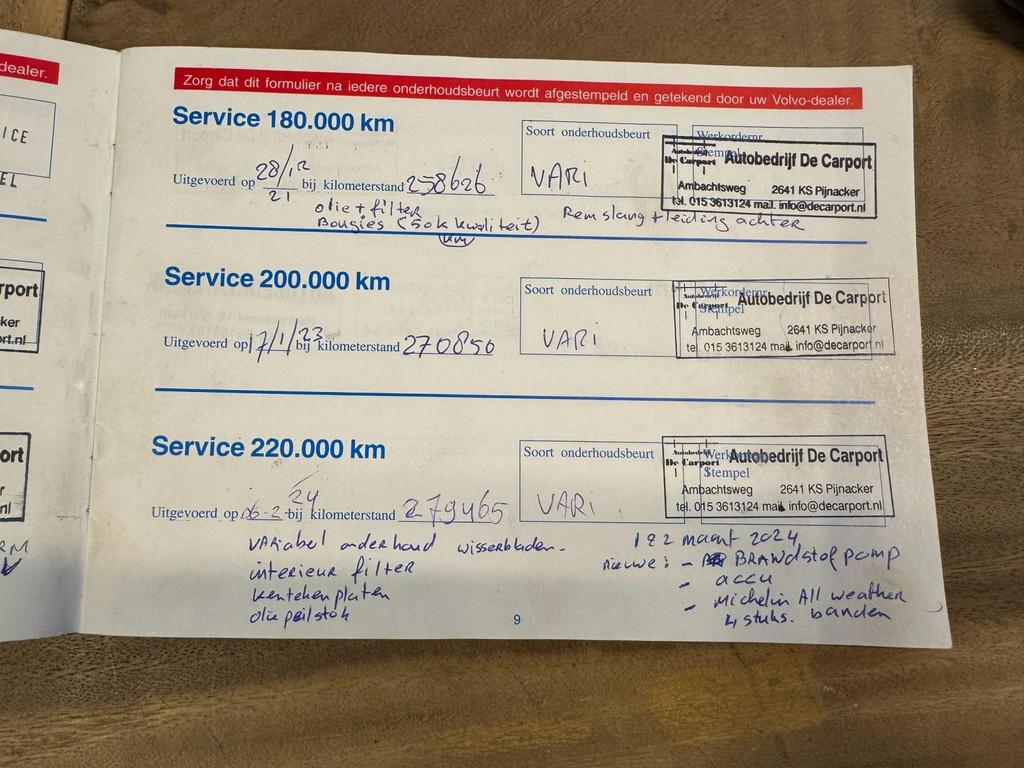 dealer.
ICE
EL
rport
ker
rt.nl
ort
r
nl
RM
Zorg dat dit formulier na iedere onderhoudsbeurt wordt afgestempeld en getekend door uw Volvo-dealer.
Service 180.000 km
Soort onderhoudsbeurt
Werkordernr.
Stempel
VARi
Autobedrijf De Carport
De Carport
Ambachtsweg 2641 KS Pijnacker
tel. 015 3613124 mail. info@decarport.nl
Uitgevoerd op 28/12 21 bij kilometerstand 258626
olie + filter
Bougies (50k kwaliteit)
km
Remslang + leiding achter
Service 200.000 km
Soort onderhoudsbeurt
Werkordernr.
Stempel
VARi
Autobedrijf De Carport
De Carport
Ambachtsweg 2641 KS Pijnacker
tel. 015 3613124 mail. info@decarport.nl
Uitgevoerd op 17/1/23 bij kilometerstand 270850
Service 220.000 km
Soort onderhoudsbeurt
Stempel
VARi
Autobedrijf De Carport
De Carport
Ambachtsweg 2641 KS Pijnacker
tel. 015 3613124 mail. info@decarport.nl
Uitgevoerd op 06-2-24 bij kilometerstand 279465
VARiabel onderhoud wisserbladen.
interieur filter
kentekenplaten
olie peilstok
1&2 maart 2024
nieuwe: - BRANDstof pomp
- accu
- Michelin All weather
4 stuks. banden
9